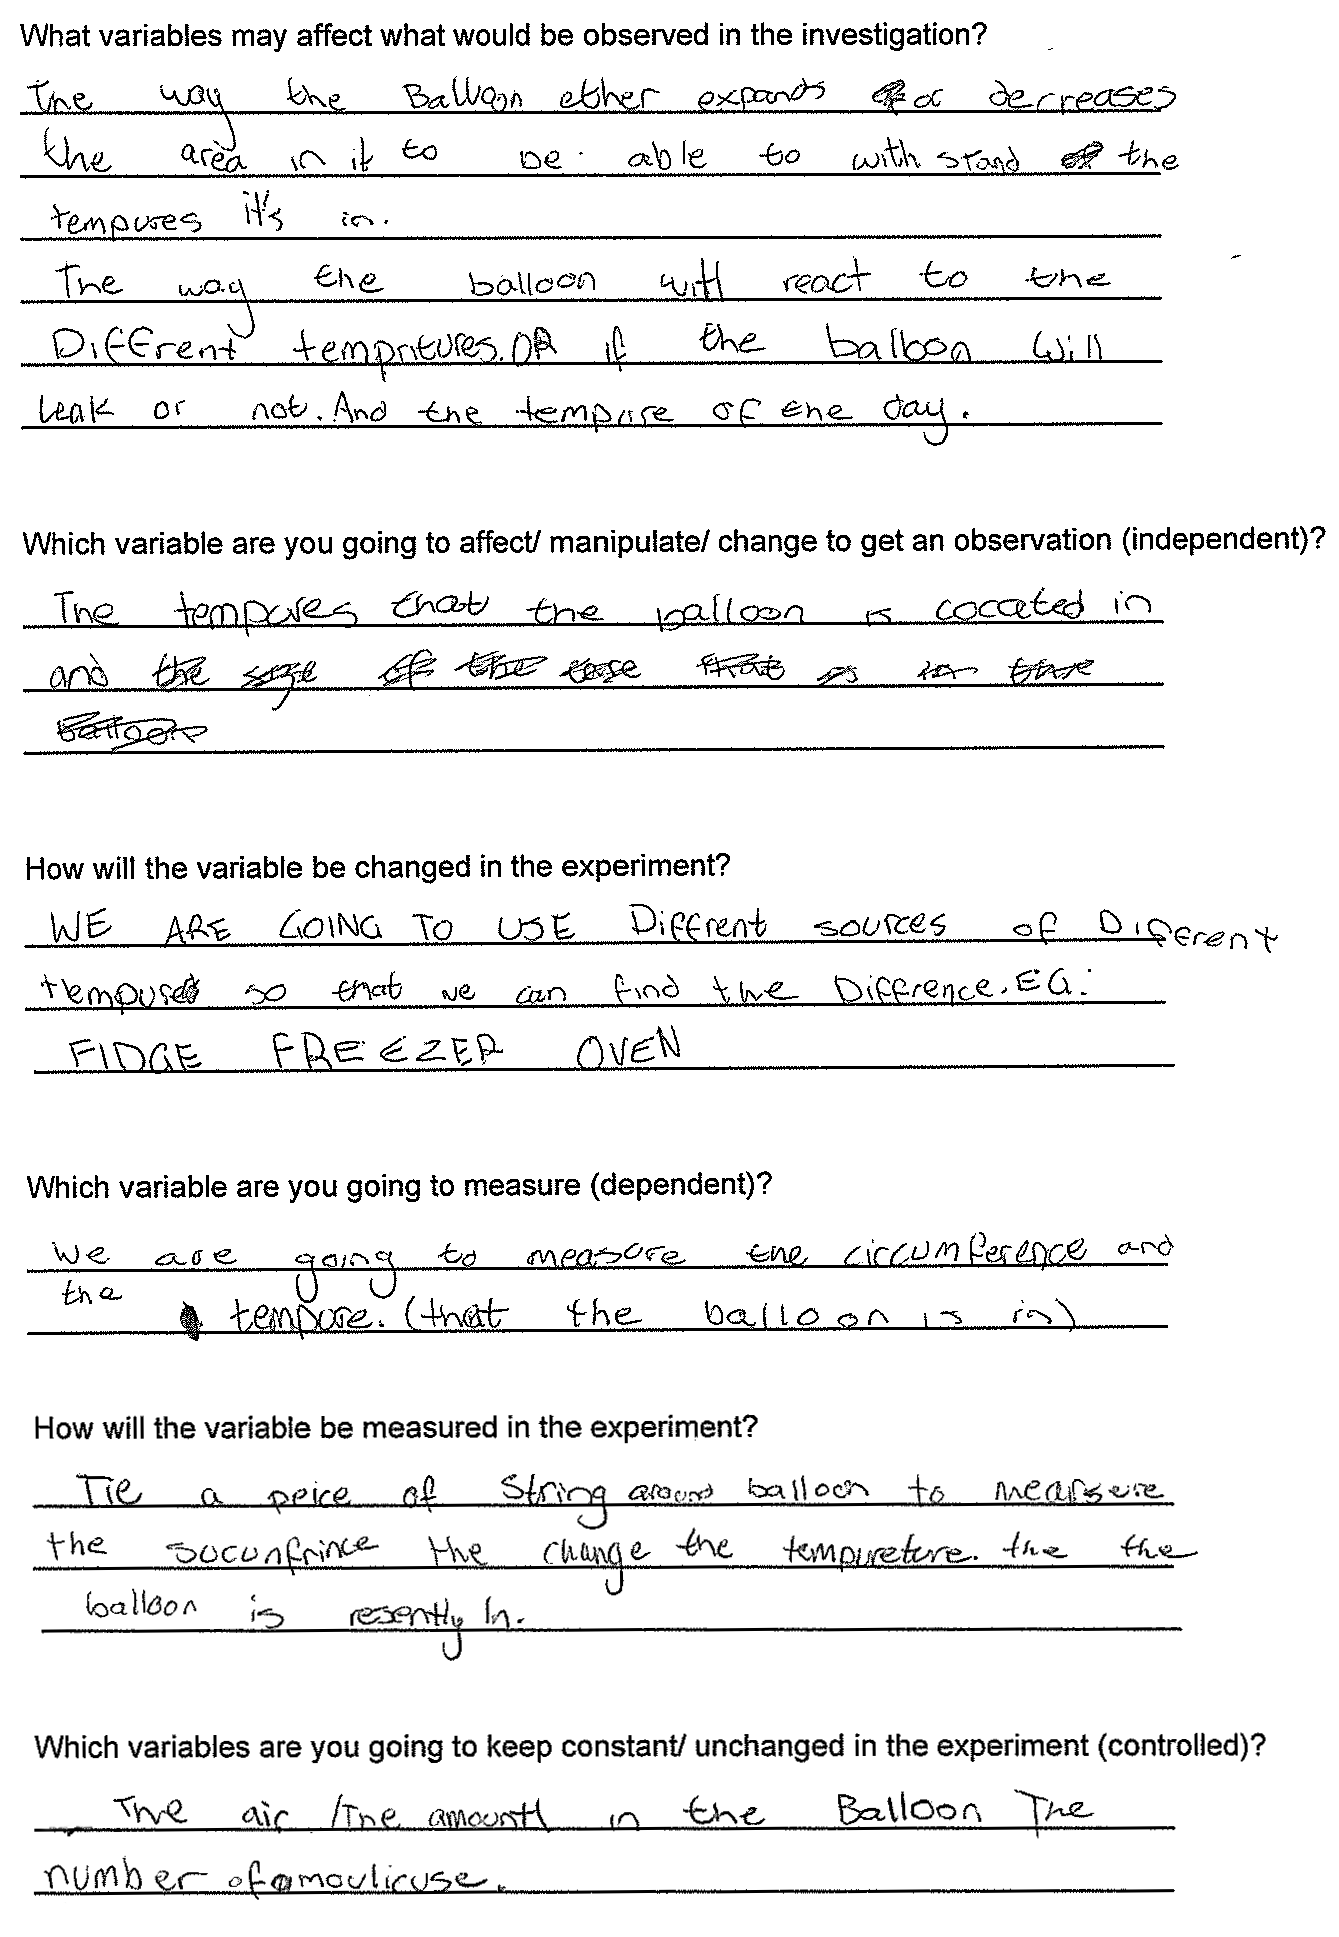 What variables may affect what would be observed in the investigation?
The way the Balloon ether expands or decreases
the area in it to be able to with stand the
tempures it's in.
The way the balloon will react to the
Different tempritures. OR if the balloon will
leak or not. And the tempure of the day.
Which variable are you going to affect/ manipulate/ change to get an observation (independent)?
The tempures that the balloon is cocated in
and the size of the  that is in the
Balloon
How will the variable be changed in the experiment?
WE ARE GOING TO USE Diffrent sources of Different
tempures so that we can find the Difference. EG:
FIDGE FREEZER OVEN
Which variable are you going to measure (dependent)?
We are going to measure the circumference and
the tempure. (that the balloon is in)
How will the variable be measured in the experiment?
Tie a peice of string around balloon to mearsure
the socunfrince the change the tempureture. the the
balloon is resently In.
Which variables are you going to keep constant/ unchanged in the experiment (controlled)?
The air /The amount in the Balloon The
number of amoulicuse.